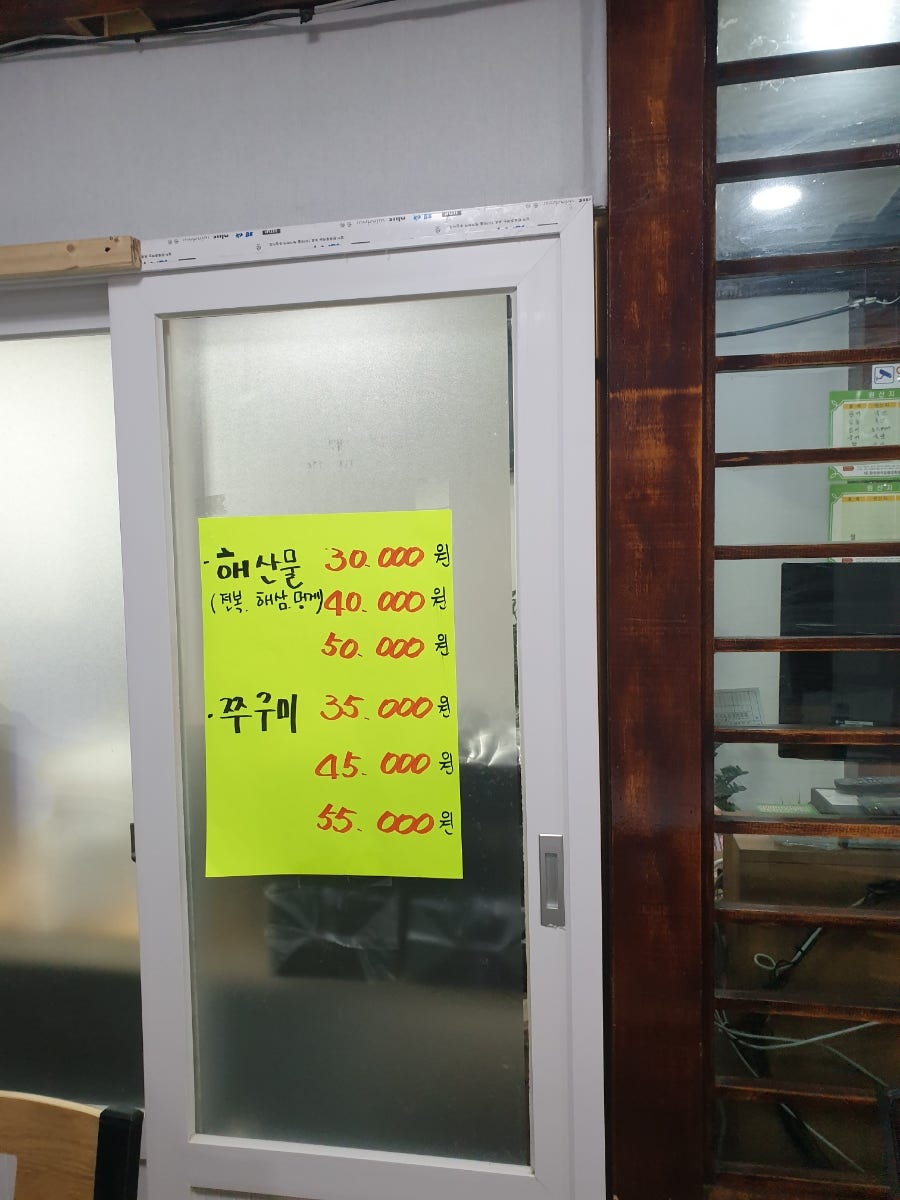 · 해산물 30.000 원
(전복. 해삼.멍게) 40.000 원
50.000 원
· 쭈구미 35.000 원
45.000 원
55.000 원
원산지
원산지